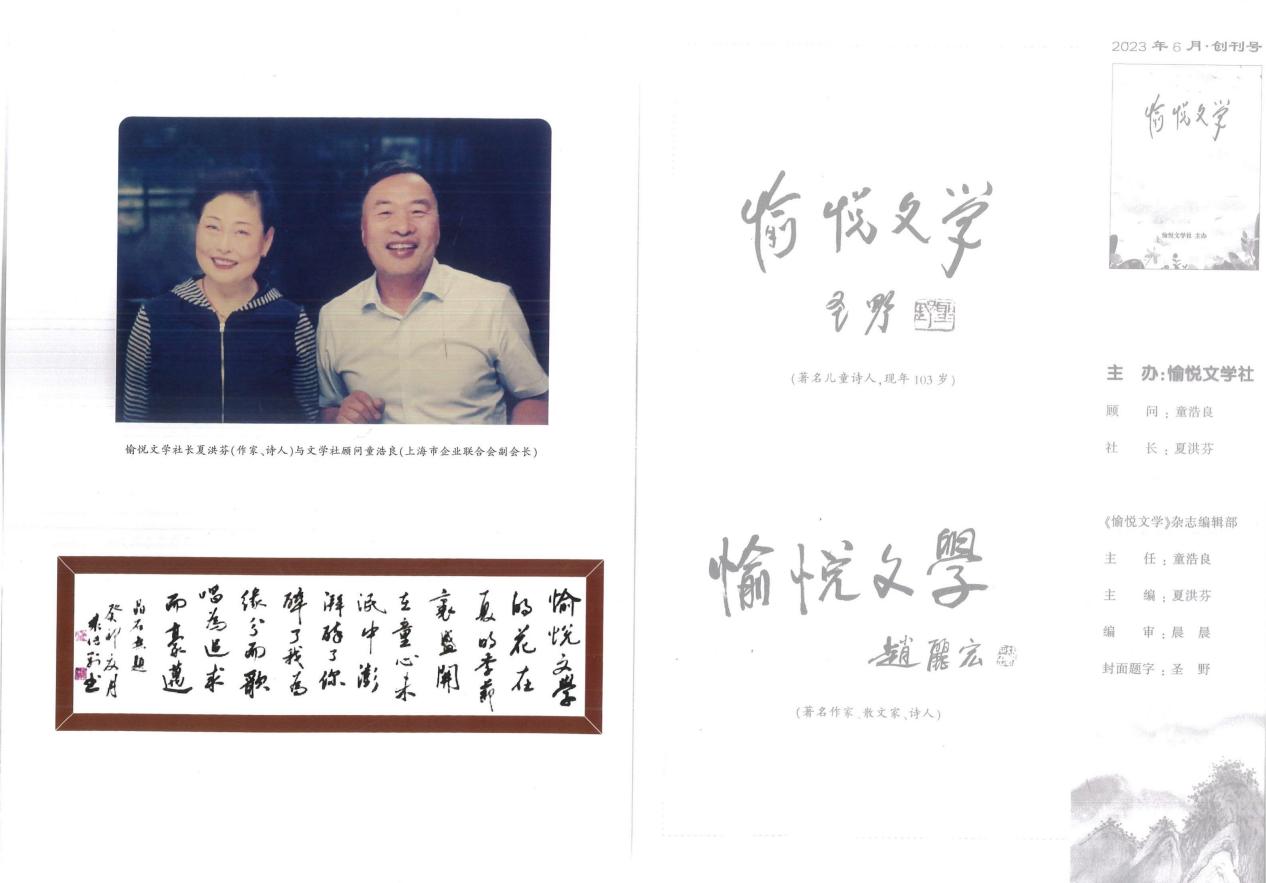 愉悦文学社长夏洪芬(作家、诗人)与文学社顾问童浩良(上海市企业联合会副会长)
愉悦文學
的花在
夏的季節
裏盛開
在童心未
泯中澎
湃醉了你
醉了我為
缘分而歌
唱為追求
而豪邁
晶石吉题
癸卯夏月
书
愉悦文学
圣野
(著名儿童诗人,现年 103 岁)
愉悦文學
趙麗宏
(著名作家、散文家、诗人)
2023 年 6 月·创刊号
愉悦文学
愉悦文学社 主办
主 办:愉悦文学社
顾 问:童浩良
社 长:夏洪芬
《愉悦文学》杂志编辑部
主 任:童浩良
主 编:夏洪芬
编 审:晨 晨
封面题字:圣 野